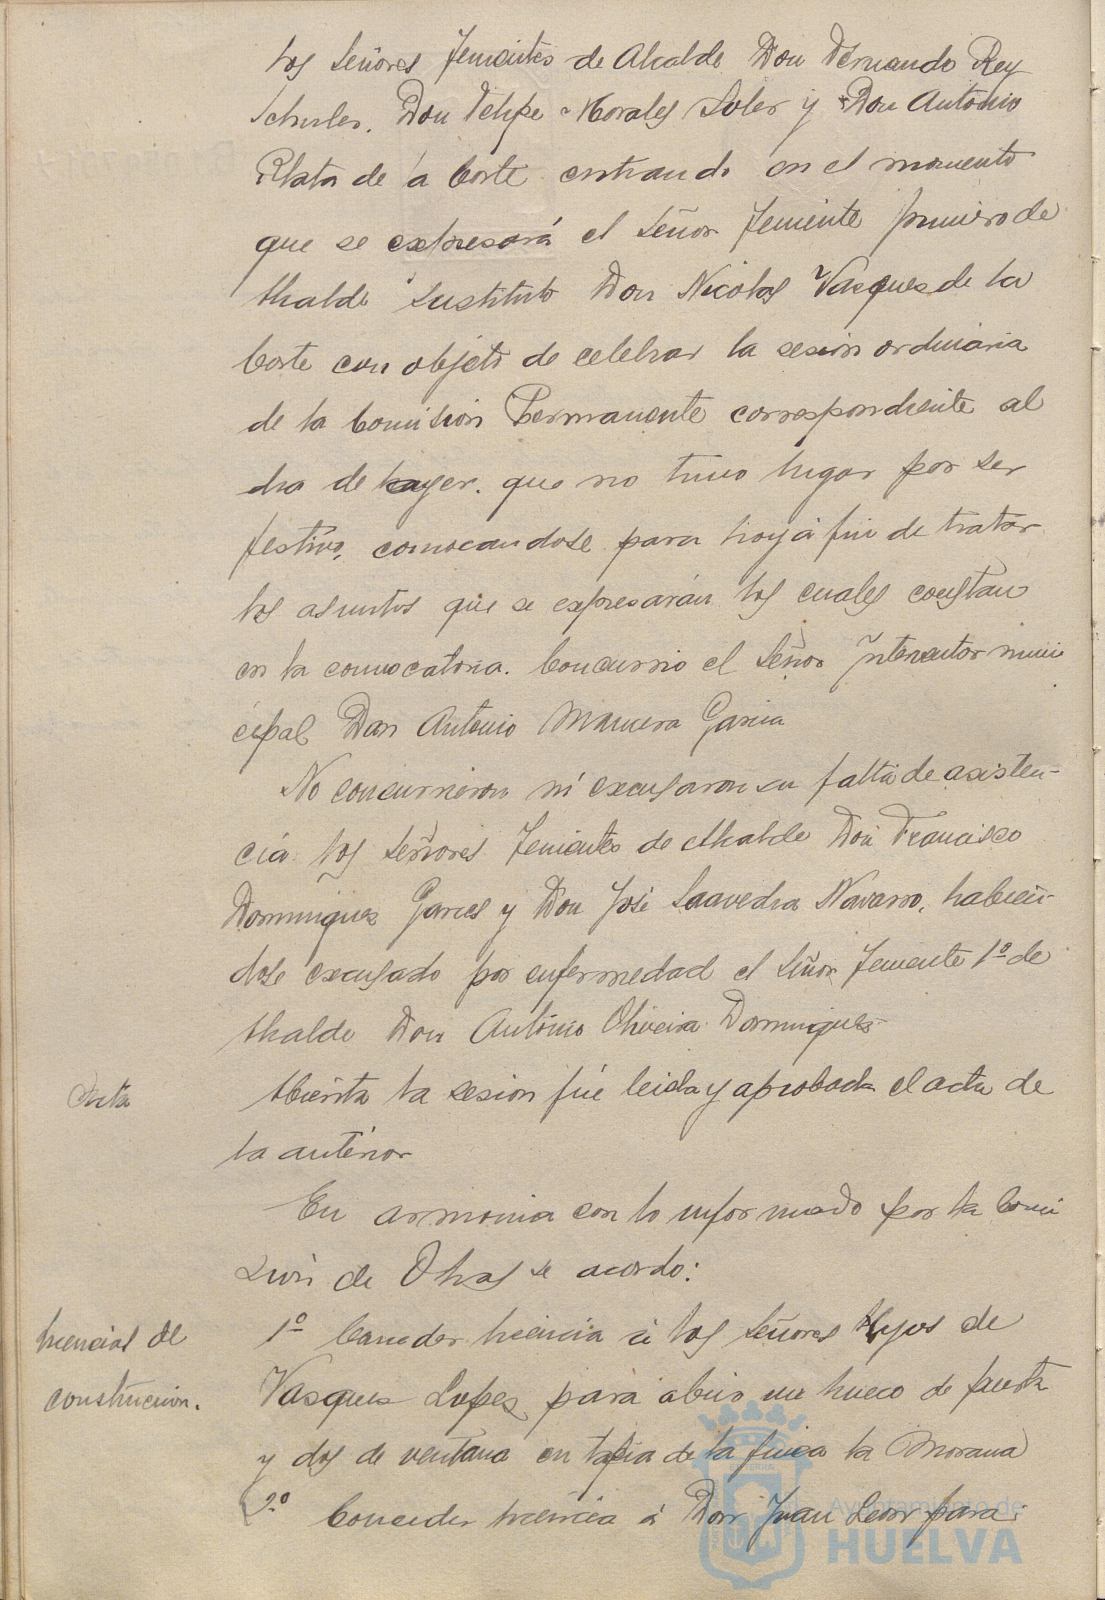 los Señores Tenientes de Alcalde Don Fernando Rey
Schuler, Don Felipe Morales Soler y Don Antonio
Plata de la Corte entrando en el momento
que se expresará el Señor Teniente primero de
Alcalde sustituto Don Nicolas Vasques de la
Corte con objeto de celebrar la sesion ordinaria
de la Comision Permanente correspondiente al
dia de ayer. que no tuvo lugar por ser
festivo, convocandose para hoy á fin de tratar
los asuntos que se expresarán los cuales constan
en la convocatoria. Concurrio el Señor Interventor muni
cipal Don Antonio Garcia
No concurrieron ni excusaron su falta de asisten-
cia los Señores Tenientes de Alcalde Don Francisco
Dominguez Garces y Don José Saavedra Navarro, habien-
dose excusado por enfermedad el Señor Teniente 1º de
Alcalde Don Antonio Oliveira Dominguez
Acta
Abierta la sesion fué leida y aprobada el acta de
la anterior
En armonia con lo informado por la Comi
sion de Obras se acordo:
Licencias de
construccion.
1º Conceder licencia á los Señores Hijos de
Vasquez Lopez para abrir un hueco de puerta
y dos de ventana en tapia de la finca la Morana
2º Conceder licencia á Don Juan Leon para
Ayuntamiento de
HUELVA